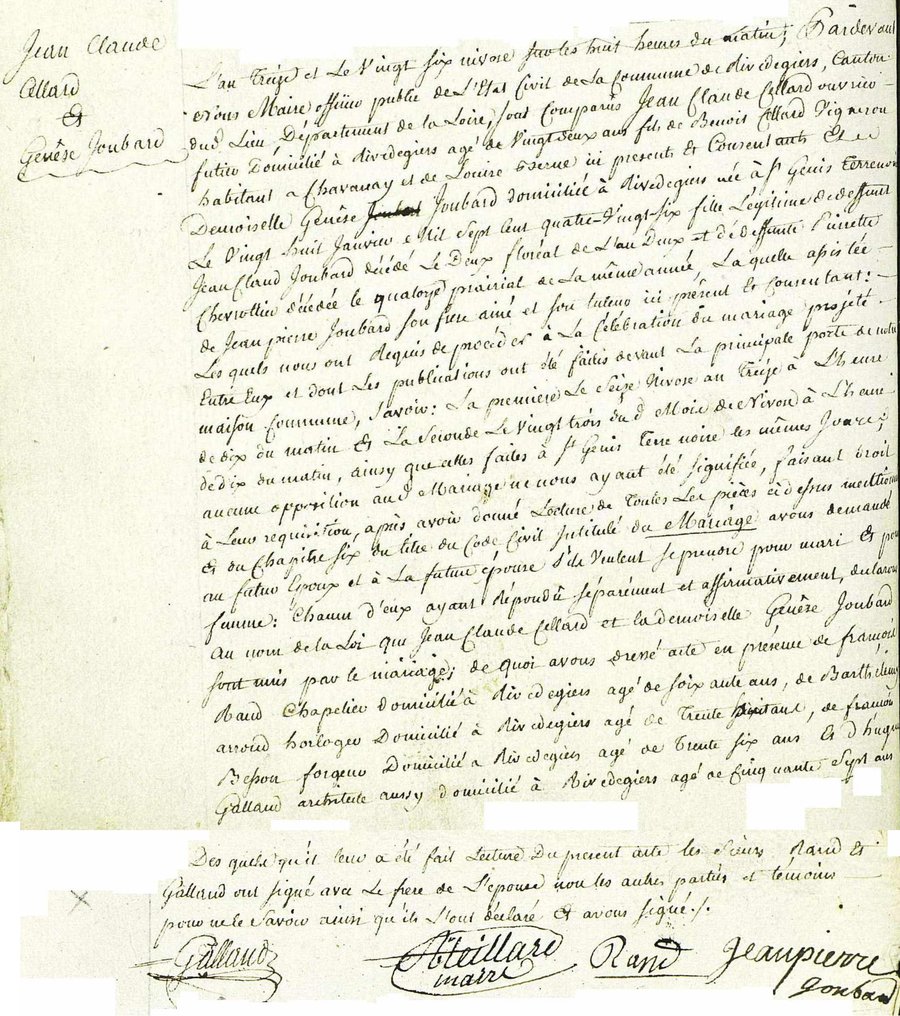 Jean Claude
Cellard
Et
Genêse Joubard
L'an Treize et Le Vingt six nivose sur les huit heures du matin, Pardevant
nous Maire officier public de L'Etat Civil de La Commune de Rivedegiers, Canton
dud. Lieu, Département de la Loire, sont Comparus Jean Claude Cellard ouvrier
futier Domicilié à Rivedegiers agé de Vingt deux ans fils de Benoit Cellard Vigneron
habitant a Chavanay et de Louise ici presents et Consentants Et
Demoiselle Genêse Joubard domiciliée à Rivedegiers née à St Genis Terrenoire
Le Vingt huit Janvier Mil Sept Cent quatre-Vingt-six fille Légitime de deffunt
Jean Claud Joubard décédé Le Deux floréal de L'an Deux et de deffunte Pierrette
Chevrottier décédée le quatorze prairial de La même année, La quelle assistée
de Jean pierre Joubard son frere ainé et son tuteur ici présent Et Consentant :
Les quels nous ont Requis de procéder à La Célébration du mariage projété
Entre Eux et dont Les publications ont été faites devant La principale porte de notre
maison Commune, Savoir : La première Le Seize Nivose an Treize à L'heure
de dix du matin Et La Seconde Le Vingt trois du d. Mois de Nivose à L'heure
de Dix du matin, ainsy que celles faites à St Genis Terre noire les mêmes Jours ;
aucune opposition aud. Mariage ne nous ayant été signifiée, faisant droit
à Leur requisition, après avoir donné Lecture de Toutes Les pièces ci dessus mentionnées
Et du Chapitre six du titre du Code Civil Intitulé du Mariage avons demandé
au futur Epoux et à La future épouse S'ils Veulent se prendre pour mari Et pour
femme : Chacun d'eux ayant Répondu séparément et affirmativement, declarons
au nom de la Loi que Jean Claude Cellard et la demoiselle Genêse Joubard
sont unis par le mariage ; de quoi avons dressé acte en présence de francois
Rand Chapelier domicilié à Rivedegiers agé de soixante ans, de Barthélemy
arroud horloger Domicilié à Rivedegiers agé de Trente ans, de francois
Besson forgeur Domicilié a Rivedegiers agé de Trente six ans Et d'hugues
Galland architecte aussy domicilié à Rivedegiers agé de Cinquante Sept ans
Des quels qu'il leur a été fait Lecture Du présent acte les Sieurs Rand Et
Galland ont signé avec Le frere de L'épouse non les autres parties et témoins
pour ne le Savoir ainsi qu'ils L'ont déclaré Et avons signé ./.
Galland
maire
Rand
Jeanpierre
Joubard